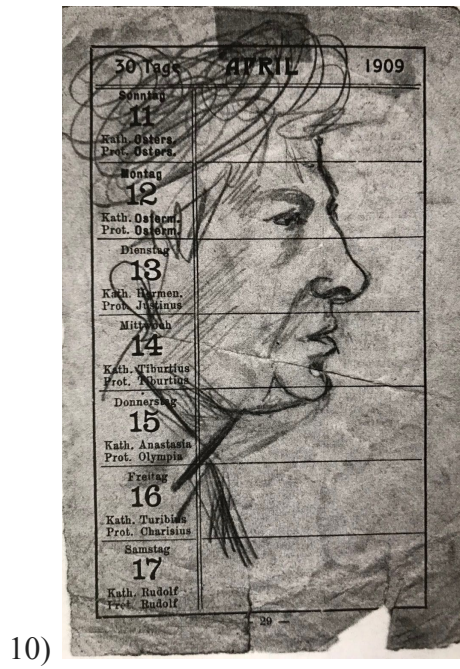 30 Tage APRIL 1909
Sonntag
11
Kath. Osters.
Prot. Osters.
Montag
12
Kath. Osterm.
Prot. Osterm.
Dienstag
13
Kath. Hermen.
Prot. Justinus
Mittwoch
14
Kath. Tiburtius
Prot. Tiburtius
Donnerstag
15
Kath. Anastasia
Prot. Olympia
Freitag
16
Kath. Turibius
Prot. Charisius
Samstag
17
Kath. Rudolf
Prot. Rudolf
29 —
10)